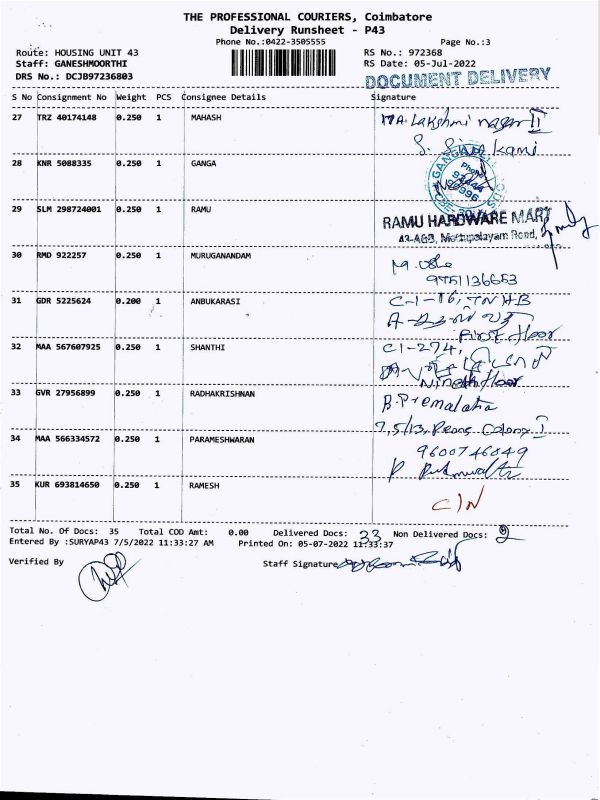 THE PROFESSIONAL COURIERS, Coimbatore
Delivery Runsheet - P43
Phone No.:0422-3505555
Page No.:3
Route: HOUSING UNIT 43
RS No.: 972368
Staff: GANESHMOORTHI
RS Date: 05-Jul-2022
DRS No.: DCJB97236803
DOCUMENT DELIVERY
S No Consignment No Weight PCS Consignee Details Signature
27 TRZ 40174148 0.250 1 MAHASH
17A. Lakshmi nagar II
28 KNR 5088335 0.250 1 GANGA
29 SLM 298724001 0.250 1 RAMU
RAMU HARDWARE MART
30 RMD 922257 0.250 1 MURUGANANDAM
M. Usha
9751136653
31 GDR 5225624 0.200 1 ANBUKARASI
C-1-16, TNHB
First floor
32 MAA 567607925 0.250 1 SHANTHI
C1-274,
Nineth floor
33 GVR 27956899 0.250 1 RADHAKRISHNAN
B. Premalatha
34 MAA 566334572 0.250 1 PARAMESHWARAN
7,5/13, Peace Colony I
9600746049
35 KUR 693814650 0.250 1 RAMESH
C/N
Total No. Of Docs: 35 Total COD Amt: 0.00 Delivered Docs: 33 Non Delivered Docs: 2
Entered By :SURYAP43 7/5/2022 11:33:27 AM Printed On: 05-07-2022 11:33:37
Verified By
Staff Signature